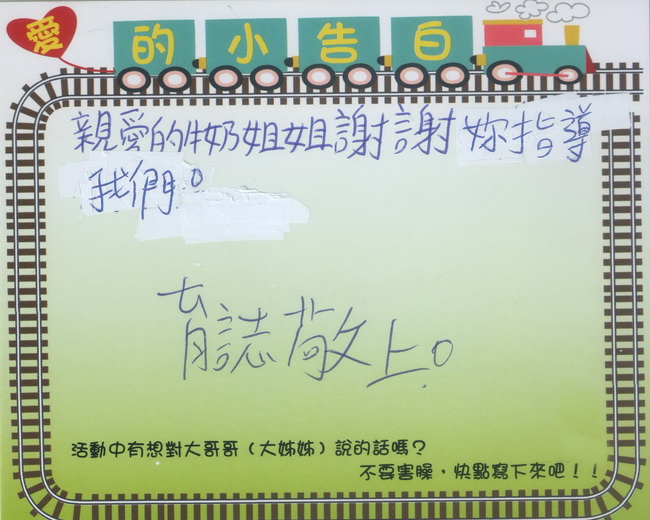 愛的小告白
親愛的牛奶姐姐謝謝妳指導
我們。
育誌敬上。
活動中有想對大哥哥（大姊姊）說的話嗎？
不要害臊，快點寫下來吧！！